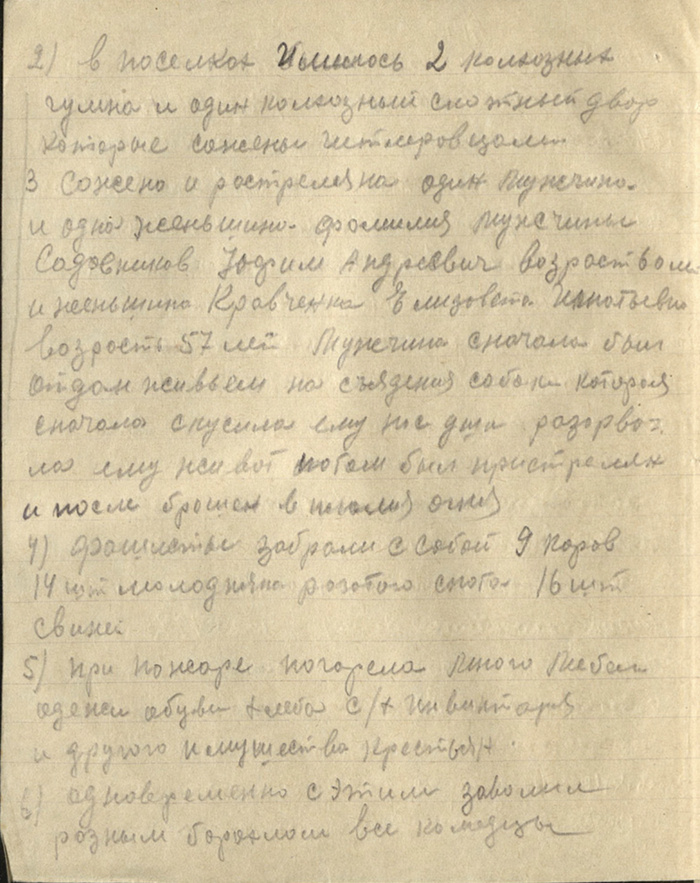 2) в поселках Имелось 2 колхозных
гумна и один колхозный скотный двор
которые сожены гитлеровцами
3 Сожено и ростреляна один Мужчина
и одна женьшина фамилия Мужчины
Садовников Ефим Андреевич возраст лет
и женьшина Кравченка Елизовета Игнатьевна
возрасть 57 лет Мужчина сначала был
отдан живьем на съядения собаки которая
сначала скусила ему разорва-
ла ему живот потом был пристрелян
и после брошен в пламя огня
4) Фашисты забрали с собой 9 коров
14 шт молодняка рогатого скота 16 шт
свиней
5) При пожаре погорела Много Мебели
одежи обуви хлеба с/х инвинтаря
и другого имущества крестьян
6) одновременно с этим завалили
розным борохлом все колодцы